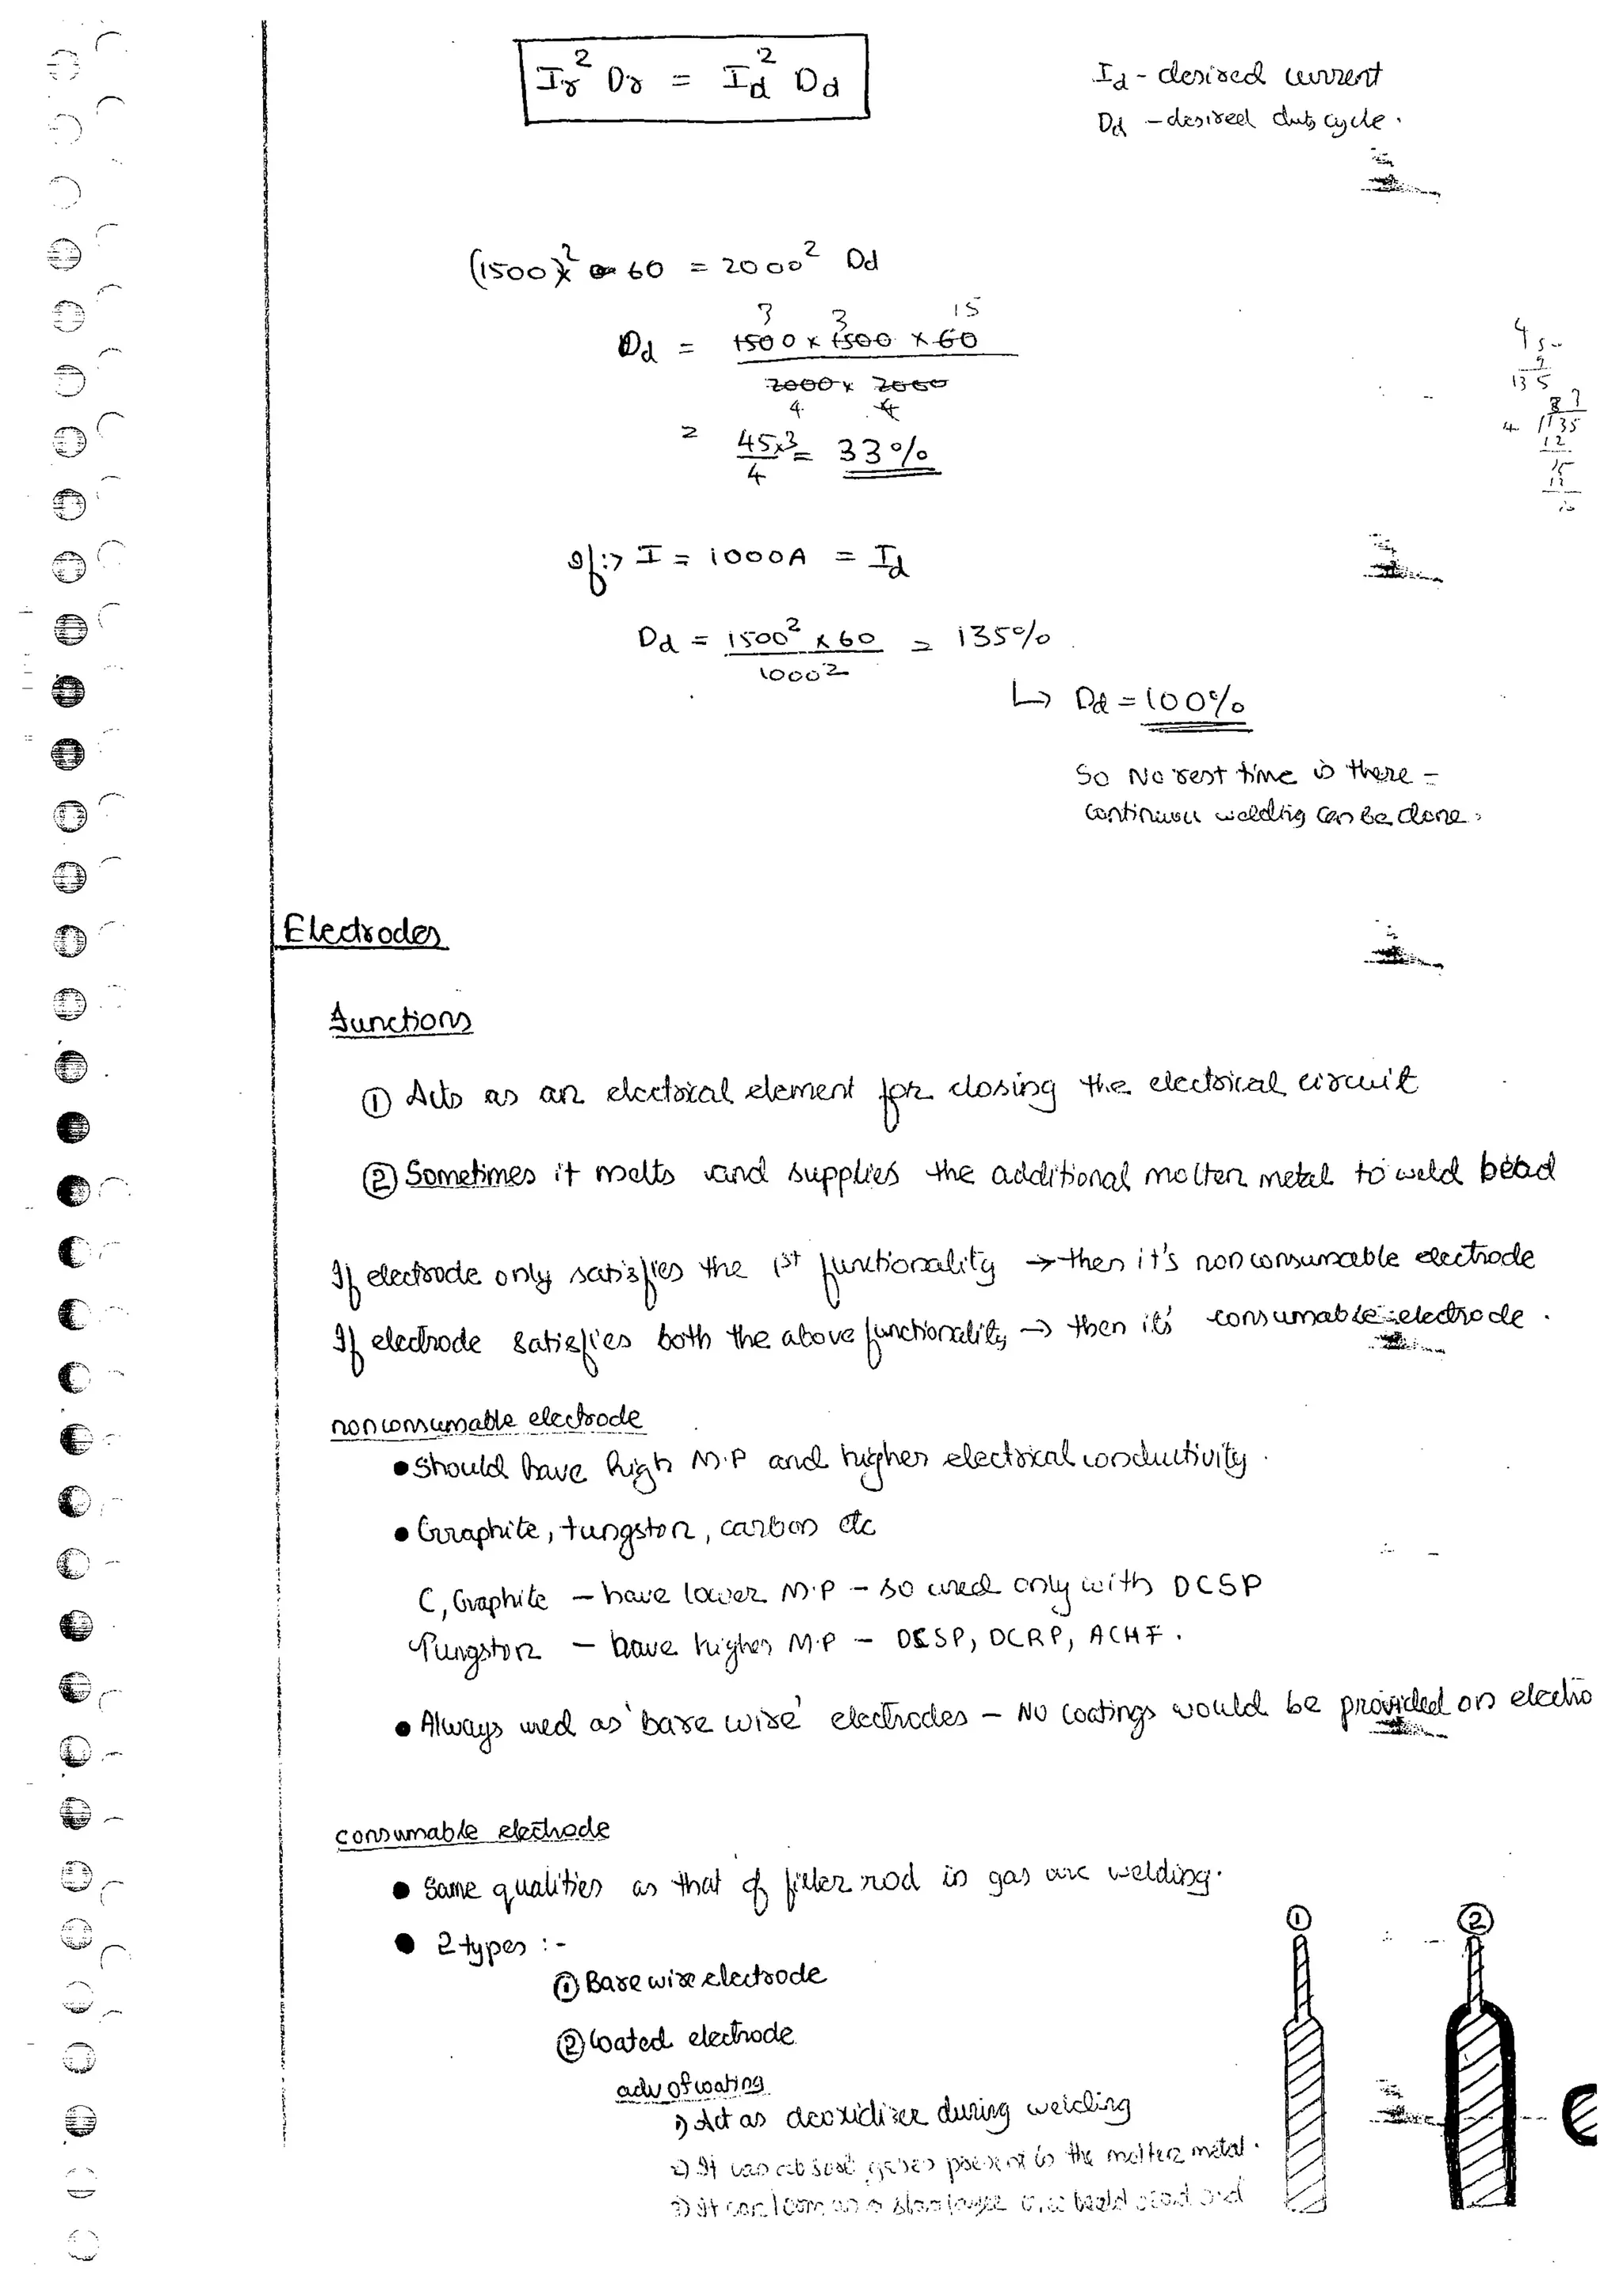 Ir² Dr = Id² Dd
Id - desired current
Dd - desired duty cycle.
(1500)² x 60 = 2000² Dd
Dd = 1500 x 1500 x 60 / 2000 x 2000
3 3 15
4 4
= 45x3 / 4 = 33%
45
135
4 135
12
15
12
If :→ I = 1000A = Id
Dd = 1500² x 60 / 1000² = 135%
↳ Dd = 100%
So No rest time is there -
Continuou welding can be done.
Electrodes
Functions
① Acts as an electrical element for closing the electrical circuit
② Sometimes it melts and supplies the additional molten metal to weld bead
If electrode only satisfies the 1st functionality → then it's nonconsumable electrode
If electrode satisfies both the above functionality → then it's consumable electrode.
nonconsumable electrode
• Should have high M.P and higher electrical conductivity.
• Graphite, tungston, carbon etc
C, Graphite - have lower M.P - so used only with DCSP
Tungston - have higher M.P - DCSP, DCRP, ACHF.
• Always used as 'bare wire' electrodes - No coatings would be provided on electro
consumable electrode
• Same qualities as that of filler rod in gas arc welding.
• 2 types :-
① Bare wire electrode
② Coated electrode
adv of coating
1) Act as deoxidiser during welding
2) It can absorb gases present in the molten metal.
3) It can form as a slag layer
① ②